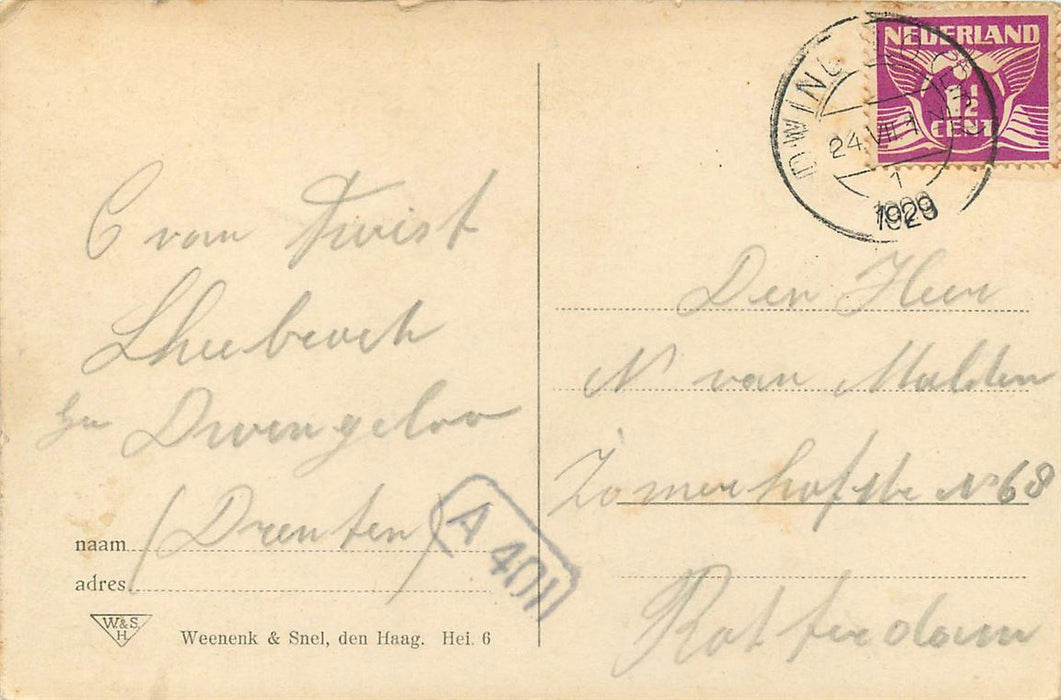 C van Twist
Lheebroek
bij Dwingeloo
(Drenten)
naam
adres
W.&S. H.
Weenenk & Snel, den Haag. Hei. 6
A 401
NEDERLAND
1½
CENT
DWINGELO
24.VII 1
1
1929
Den Heer
N van Malden
Zomerhofstr No 68
Rotterdam